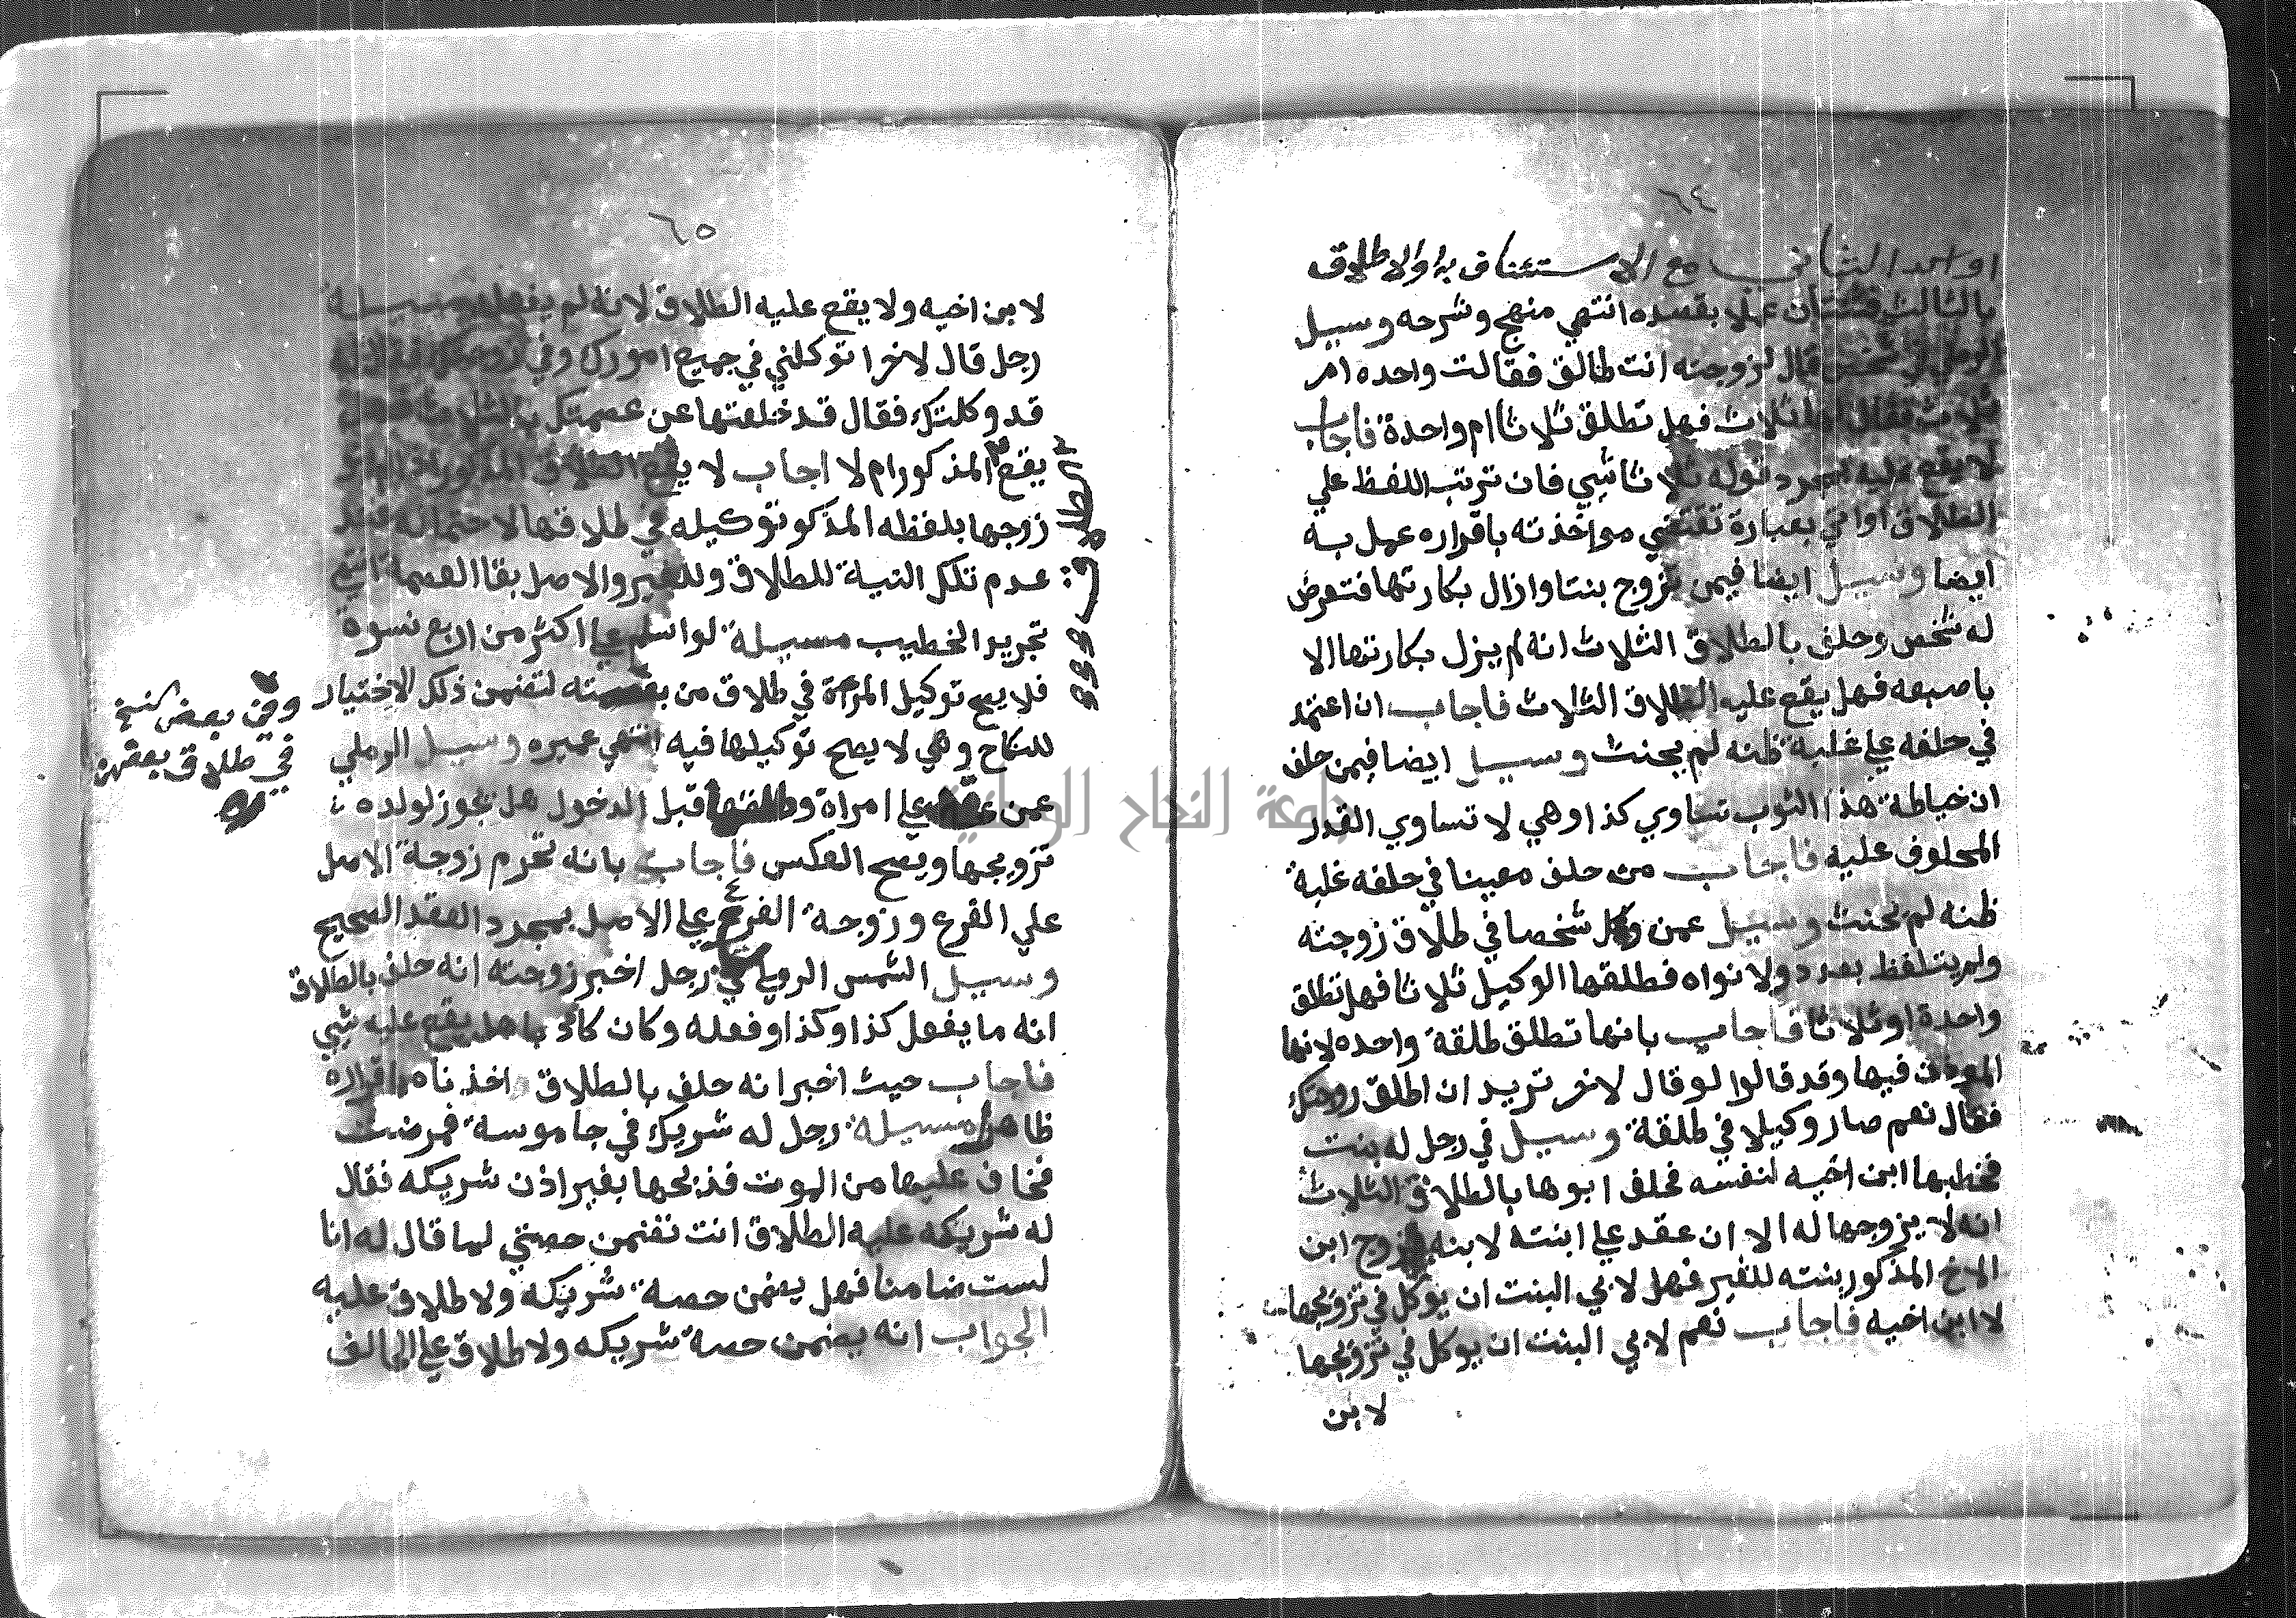 ٦٤
او احد الثاني مع الاستئناف به او الاطلاق
بالثالث فثنتان عملا بقصده انتهي منهج وشرحه وسييل
الرملي في شخص قال لزوجته انت طالق فقالت واحده ام
ثلاث فقال لها ثلاث فهل تطلق ثلاثا ام واحدة فاجاب
لا يقع عليه بمجرد قوله ثلاثا شي فان ترتب اللفظ علي
الطلاق او اتي بعبارة تقتضي مواخذته باقراره عمل به
ايضا وسييل ايضا فيمن تزوج بنتا وازال بكارتها فتعرض
له شخص وحلف بالطلاق الثلاث انه لم يزل بكارتها الا
باصبعه فهل يقع عليه الطلاق الثلاث فاجاب ان اعتمد
في حلفه علي غلبة ظنه لم يحنث وسييل ايضا فيمن حلف
ان خياطة هذا الثوب تساوي كذا وهي لا تساوي القدر
المحلوف عليه فاجاب من حلف معينا في حلفه غلبة
ظنه لم يحنث وسييل عمن وكل شخصا في طلاق زوجته
ولم يتلفظ بعدد ولا نواه فطلقها الوكيل ثلاثا فهل تطلق
واحدة او ثلاثا فاجاب بانها تطلق طلقة واحده لانها
الموذن فيها وقد قالوا لو قال لاخر تريد ان اطلق زوجتك
فقال نعم صار وكيلا في طلقة وسييل في رجل له بنت
فخطبها ابن اخيه لنفسه فحلف ابوها بالطلاق الثلاث
انه لا يزوجها له الا ان عقد علي ابنته لابنه فزوج ابن
الاخ المذكور بنته للغير فهل لابي البنت ان يوكل في تزويجها
لا ابن اخيه فاجاب نعم لابي البنت ان يوكل في تزويجها
لابن
٦٥
لابن اخيه ولا يقع عليه الطلاق لانه لم يفعله مسيلة
رجل قال لاخر اتوكلني في جميع امورك وفي زوجتك فقال له
قد وكلتك فقال قد خلعتها عن عصمتك بالثلاث فهل
يقع المذكور ام لا اجاب لا يقع الطلاق المذكور
زوجها بلفظه المذكو توكيله في طلاقها لاحتماله عند
عدم تلك النية للطلاق وللغير والاصل بقا العصمة انتهي
تجريد الخطيب مسيلة لو اسلم علي اكثر من اربع نسوة
فلا يصح توكيل المراة في طلاق من بعصمته لتضمن ذلك الاختيار
للنكاح وهي لا يصح توكيلها فيه انتهي عميره وسييل الرملي
عمن عقد علي امراة وطلقها قبل الدخول هل تجوز لولده
تزويجها ويصح العكس فاجاب بانه تحرم زوجة الاصل
علي الفرع وزوجة الفرع علي الاصل بمجرد العقد الصحيح
وسييل الشمس الرملي في رجل اخبر زوجته انه حلف بالطلاق
انه ما يفعل كذا وكذا وفعله وكان كاذبا هل يقع عليه شي
فاجاب حيث اخبر انه حلف بالطلاق واخذناه باقراره
ظاهرا مسيلة رجل له شريك في جاموسة فمرضت
فخاف عليها من الموت فذبحها بغير اذن شريكه فقال
له شريكه عليه الطلاق انت تضمن حصتي لما قال له انا
لست ضامنا فهل يضمن حصة شريكه ولا طلاق عليه
الجواب انه يضمن حصة شريكه ولا طلاق علي الحالف
الطلاق
وفي بعض نسخ
في طلاق بعضهن
جامعة النجاح الوطنية